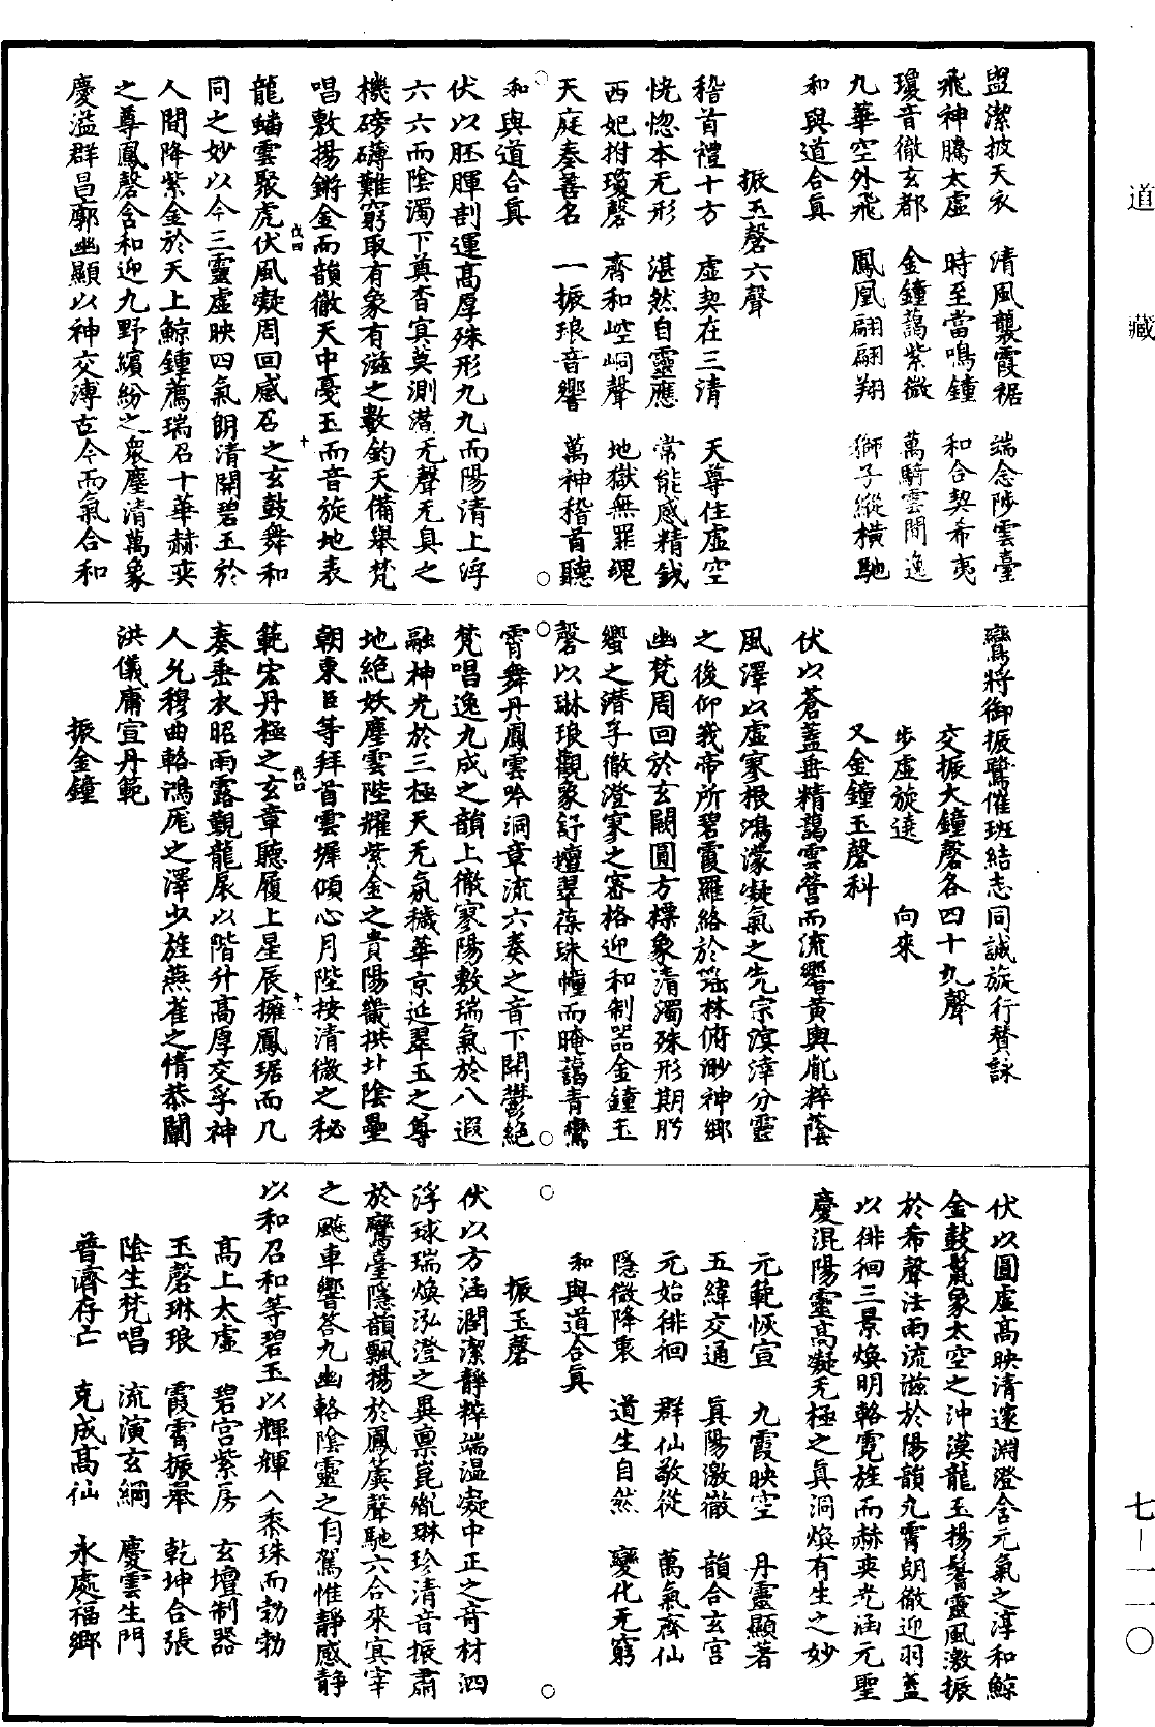 道藏
七—一一〇
盥潔披天衣　清風襲霞裾　端念陟雲臺
飛神騰太虛　時至當鳴鐘　和合契希夷
瓊音徹玄都　金鐘藹紫微　萬騎雲間逸
九華空外飛　鳳凰翩翩翔　獅子縱橫馳
和與道合真
振玉磬六聲
稽首禮十方　虛契在三清　天尊住虛空
恍惚本无形　湛然自靈應　常能感精鉞
西妃拊瓊磬　齊和崆峒聲　地獄無罪魂
天庭奏善名　一振琅音響　萬神稽首聽
和與道合真
伏以胚腪剖運高厚殊形九九而陽清上浮
六六而陰濁下奠杳冥莫測湛无聲无臭之
機磅礡難窮取有象有滋之數鈞天備舉梵
唱敷揚鏘金而韻徹天中戛玉而音旋地表
龍蟠雲聚虎伏風凝周回感召之玄鼓舞和
同之妙以今三靈虛映四氣朗清開碧玉於
人間降紫金於天上鯨鐘薦瑞召十華赫奕
之尊鳳磬含和迎九野繽紛之衆塵清萬象
慶溢群昌廓幽顯以神交溥古今而氣合和
戊四
十
鸞將御振鷺催班結志同誠旋行贊詠
交振大鐘磬各四十九聲
步虛旋遶　向來
又金鐘玉磬科
伏以蒼蓋毋精藹雲營而流響黃輿胤粹蔭
風澤以虛寥根鴻濛凝氣之先宗溟涬分靈
之後仰我帝所碧霞羅絡於瑶林俯渺神鄉
幽梵周回於玄闕圓方標象清濁殊形期肹
蠁之潛孚徹澄寥之密格迎和制器金鐘玉
磬以琳琅觀象舒壇翠葆珠幢而晻藹青鸞
霄舞丹鳳雲吟洞章流六奏之音下開鬱絕
梵唱逸九成之韻上徹寥陽敷瑞氣於八遐
融神光於三極天无氛穢華京延翠玉之尊
地絕妖塵雲陛耀紫金之貴陽畿拱北陰壘
朝東臣等拜首雲墀傾心月陛按清微之秘
範宏丹極之玄章聽履上星辰擁鳳琚而几
奏垂衣昭雨露覲龍扆以階升高厚交孚神
人允穆曲輅鴻厖之澤少旌燕雀之情恭闡
洪儀庸宣丹範
振金鐘
戊四
十一
伏以圓虛高映清邃淵澄含元氣之淳和鯨
金鼓鬣象太空之沖漠龍玉揚鬐靈風激振
於希聲法雨流滋於陽韻九霄朗徹迎羽蓋
以徘徊三景煥明輅霓旌而赫奕光涵元聖
慶混陽靈高凝无極之真洞煥有生之妙
元範恢宣　九霞映空　丹靈顯著
五緯交通　真陽激徹　韻合玄宮
元始徘徊　群仙敬從　萬氣齊仙
隱微降衷　道生自然　變化无窮
和與道合真
振玉磬
伏以方涵潤潔靜粹端温凝中正之奇材泗
浮球瑞煥泓澄之異禀崑胤琳珍清音振肅
於鸞臺隱韻飄揚於鳳簴聲馳六合來寘宰
之飈車響答九幽輅陰靈之自駕惟靜感靜
以和召和等碧玉以輝輝入黍珠而勃勃
高上太虛　碧宮紫房　玄壇制器
玉磬琳琅　霞霄振舉　乾坤合張
陰生梵唱　流演玄綱　慶雲生門
普濟存亡　克成高仙　永處福鄉